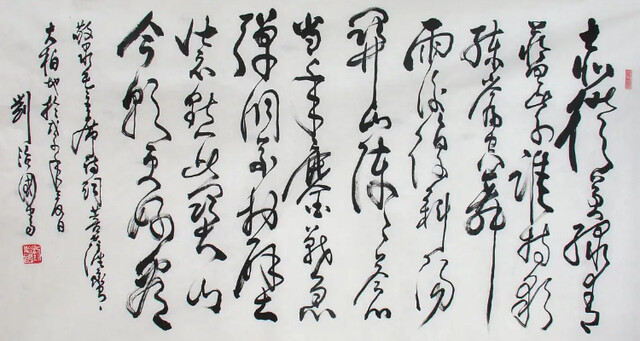 赤橙黄绿青
蓝紫谁持彩
练当空舞
雨后复斜阳
關山陣々苍
当年鏖战急
彈洞前村壁
装点此關山
今朝更好看
敬录毛主席诗词菩萨蛮
大柏地于
劉國書